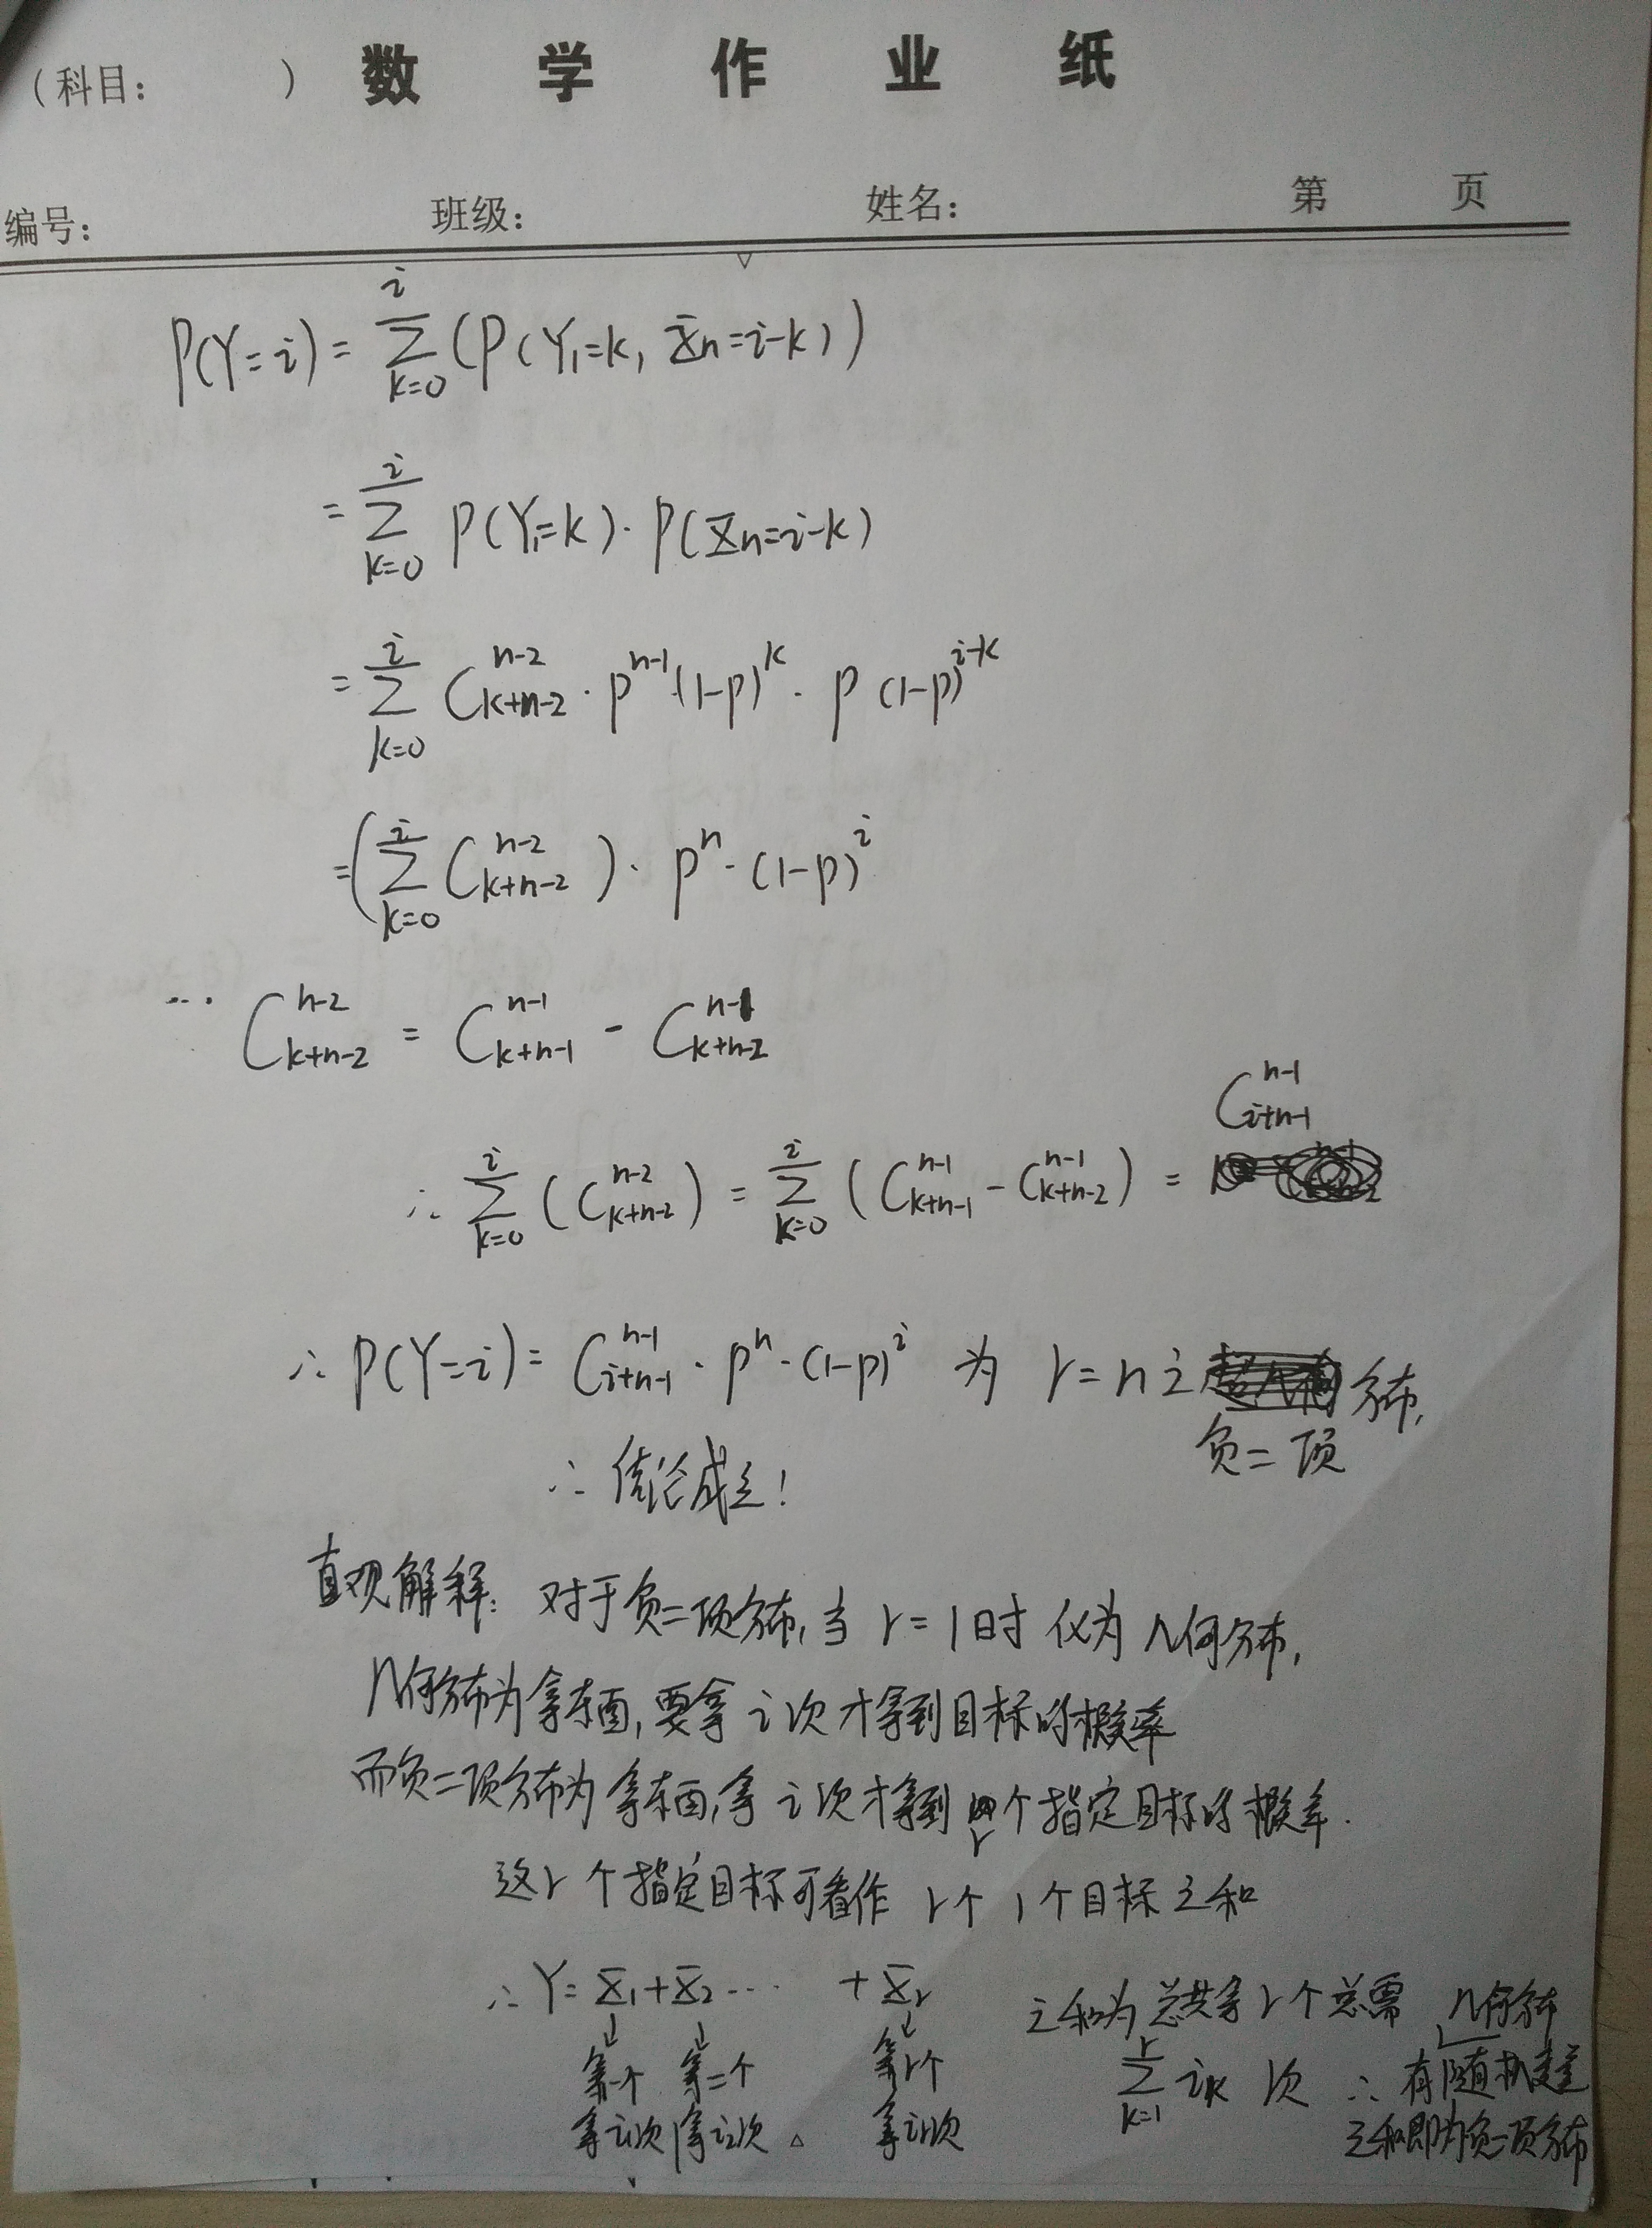 (科目: ) 数 学 作 业 纸
编号: 班级: 姓名: 第 页
P(Y=i) = \sum_{k=0}^{i} (P(Y_1=k, X_n=i-k))
= \sum_{k=0}^{i} P(Y_1=k)·P(X_n=i-k)
= \sum_{k=0}^{i} C_{k+n-2}^{n-2}·p^{n-1}(1-p)^k·p(1-p)^{i-k}
= (\sum_{k=0}^{i} C_{k+n-2}^{n-2})·p^n·(1-p)^i
∵ C_{k+n-2}^{n-2} = C_{k+n-1}^{n-1} - C_{k+n-2}^{n-1}
∴ \sum_{k=0}^{i} (C_{k+n-2}^{n-2}) = \sum_{k=0}^{i} (C_{k+n-1}^{n-1} - C_{k+n-2}^{n-1}) = C_{i+n-1}^{n-1}
∴ P(Y=i) = C_{i+n-1}^{n-1}·p^n·(1-p)^i 为 r=n 之负二项分布,
∴ 结论成立!
直观解释: 对于负二项分布,当 r=1时 仅为几何分布,
几何分布为拿东西,要拿 i次才拿到目标的概率
而负二项分布为拿东西,拿 i次才拿到 r个指定目标的概率.
这r个指定目标可看作 r个 1个目标之和
∴ Y= X_1+X_2 ··· +X_r
第一个 第二个 第r个
拿i_1次 拿i_2次 拿i_r次
之和为总共拿r个总需
\sum_{k=1}^{r} i_k 次
几何分布
∴ 有随机变量
之和即为负二项分布